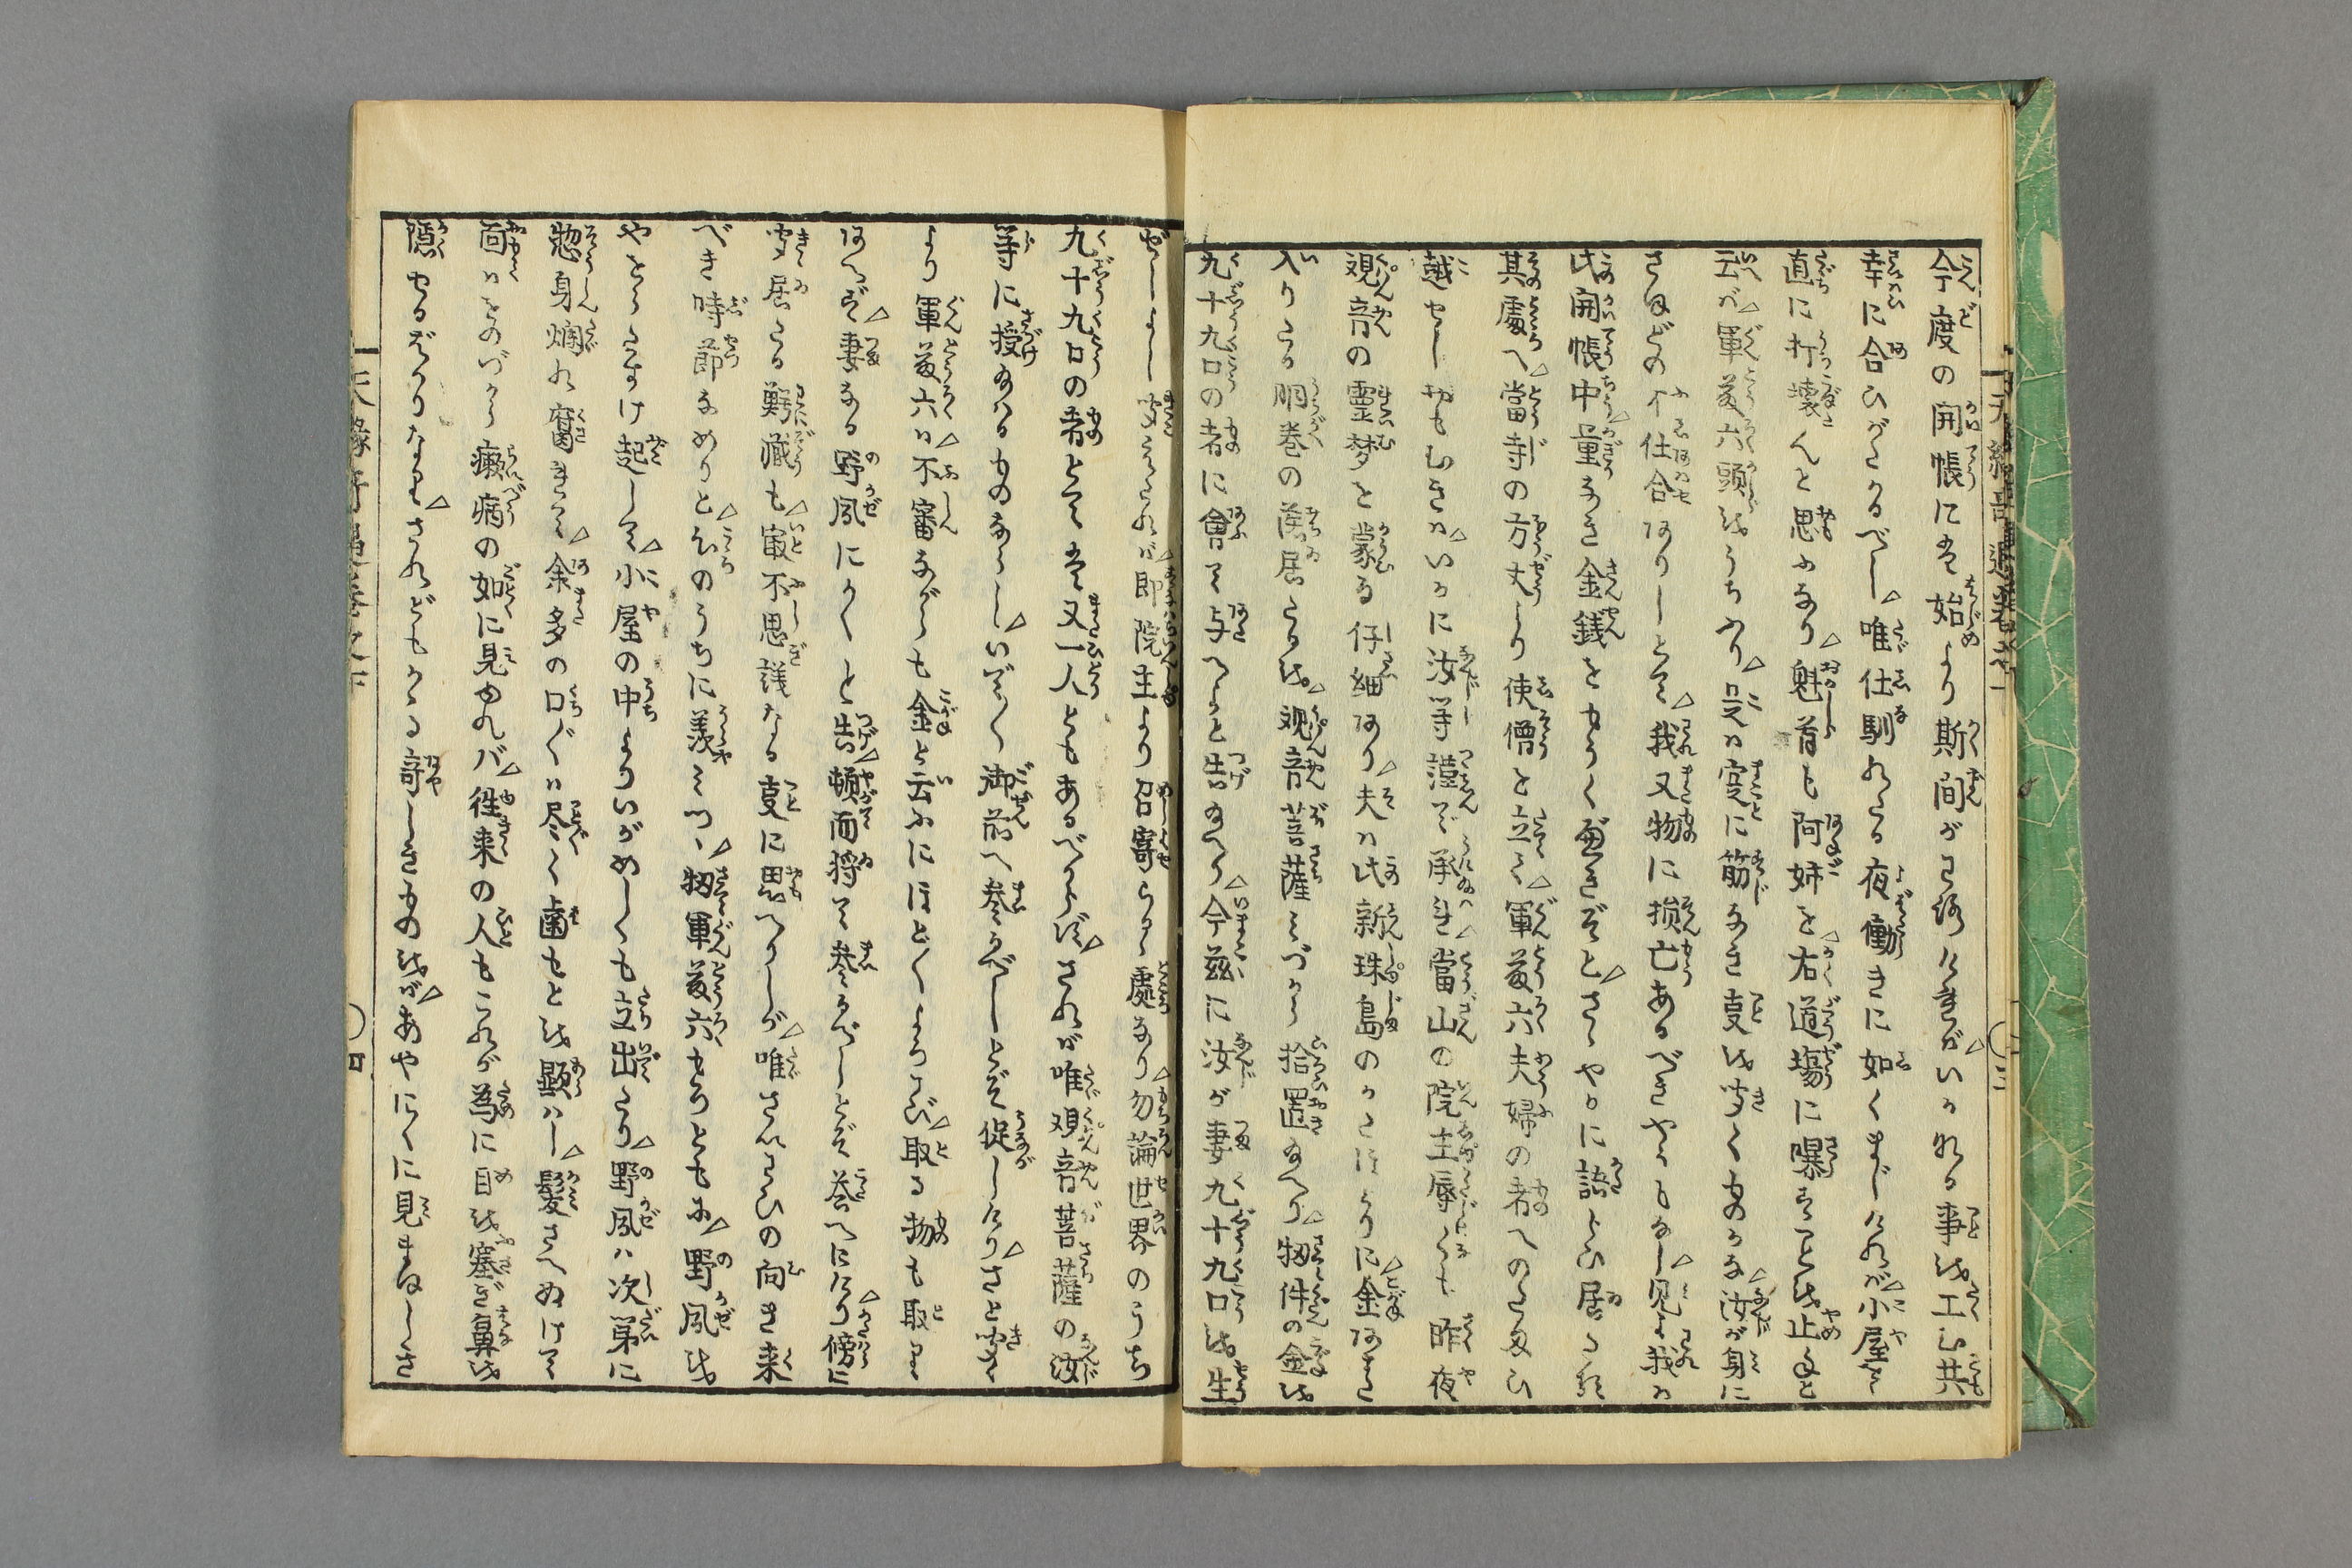 今度の開帳に先始より斯間がわろければいかなる事を工む共
幸に合ひがたかるべし△唯仕馴れたる夜働きに如くまじければ△小屋を
直に打壊んと思ふなり△魁首も阿姉を△右道場に曝すことを止めよと
云が△軍藤六頭をうちふり△是は寔に筋なき事を聞くものかな△汝が身に
さほどの不仕合ありしとて△我又物に損亡あるべきやうもなし△見よ我は
此開帳中△量なき金銭をもうくべきぞと△さゝやかに語らひ居たる
其處へ△當寺の方丈より使僧を立て△軍藤六夫婦の者へのたまひ
越せしおもむきは△いかに汝等謹で承れ△當山の院主辱くも昨夜
観音の霊夢を蒙る仔細あり△夫は此新珠島のかたほとりに△金あまた
入りたる胴巻の落居たるを△観音菩薩みづから拾置給へり△扨件の金を
九十九口の者に會て与へよと告給へり△今茲に汝が妻九十九口を生
ぜしよし聞えたれば△即院主より召寄らるゝ處なり△勿論世界のうち
九十九口の者とては又一人ともあるべからず△されば唯観音菩薩の汝
等に授け給ふものならし△いざ〱御前へ参るべしとぞ促しける△さと聞て
より軍藤六は△不審ながらも金と云ふにほと〱よろこび△取る物も取りて
あへず△妻なる野風にかく〱と告△頓而将て参るべしとぞ答へにける△傍に
聞居たる鰐蔵も△最不思議なる事に思へりしが△唯さいわひの向き来
べき時節なめりと△心のうちに羨みつゝ△扨軍藤六もろともに△野風を
やをらたすけ起して△小屋の中よりいがめしくも立出たり△野風は次第に
惣身爛れ腐きて△余多の口〲は尽く歯もとを顕はし△髪さへぬけて
面はをのづから癩病の如に見ゆれバ△徃来の人もこれが為に目を塞ぎ鼻を
隠せるばかりなり△されどもかゝる奇しきものをば△あやにくに見まほしき